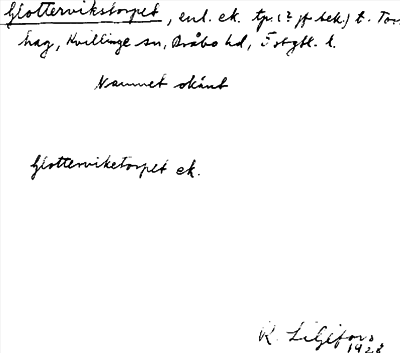 Glottervikstorpet, enl. ek. tp. (? jf bek.) t. Tors
hag, Kvillinge sn, Bråbo hd, Östgtl. l.
Namnet okänt
Glotterviketorpet ek.
R. Liljefors
1928